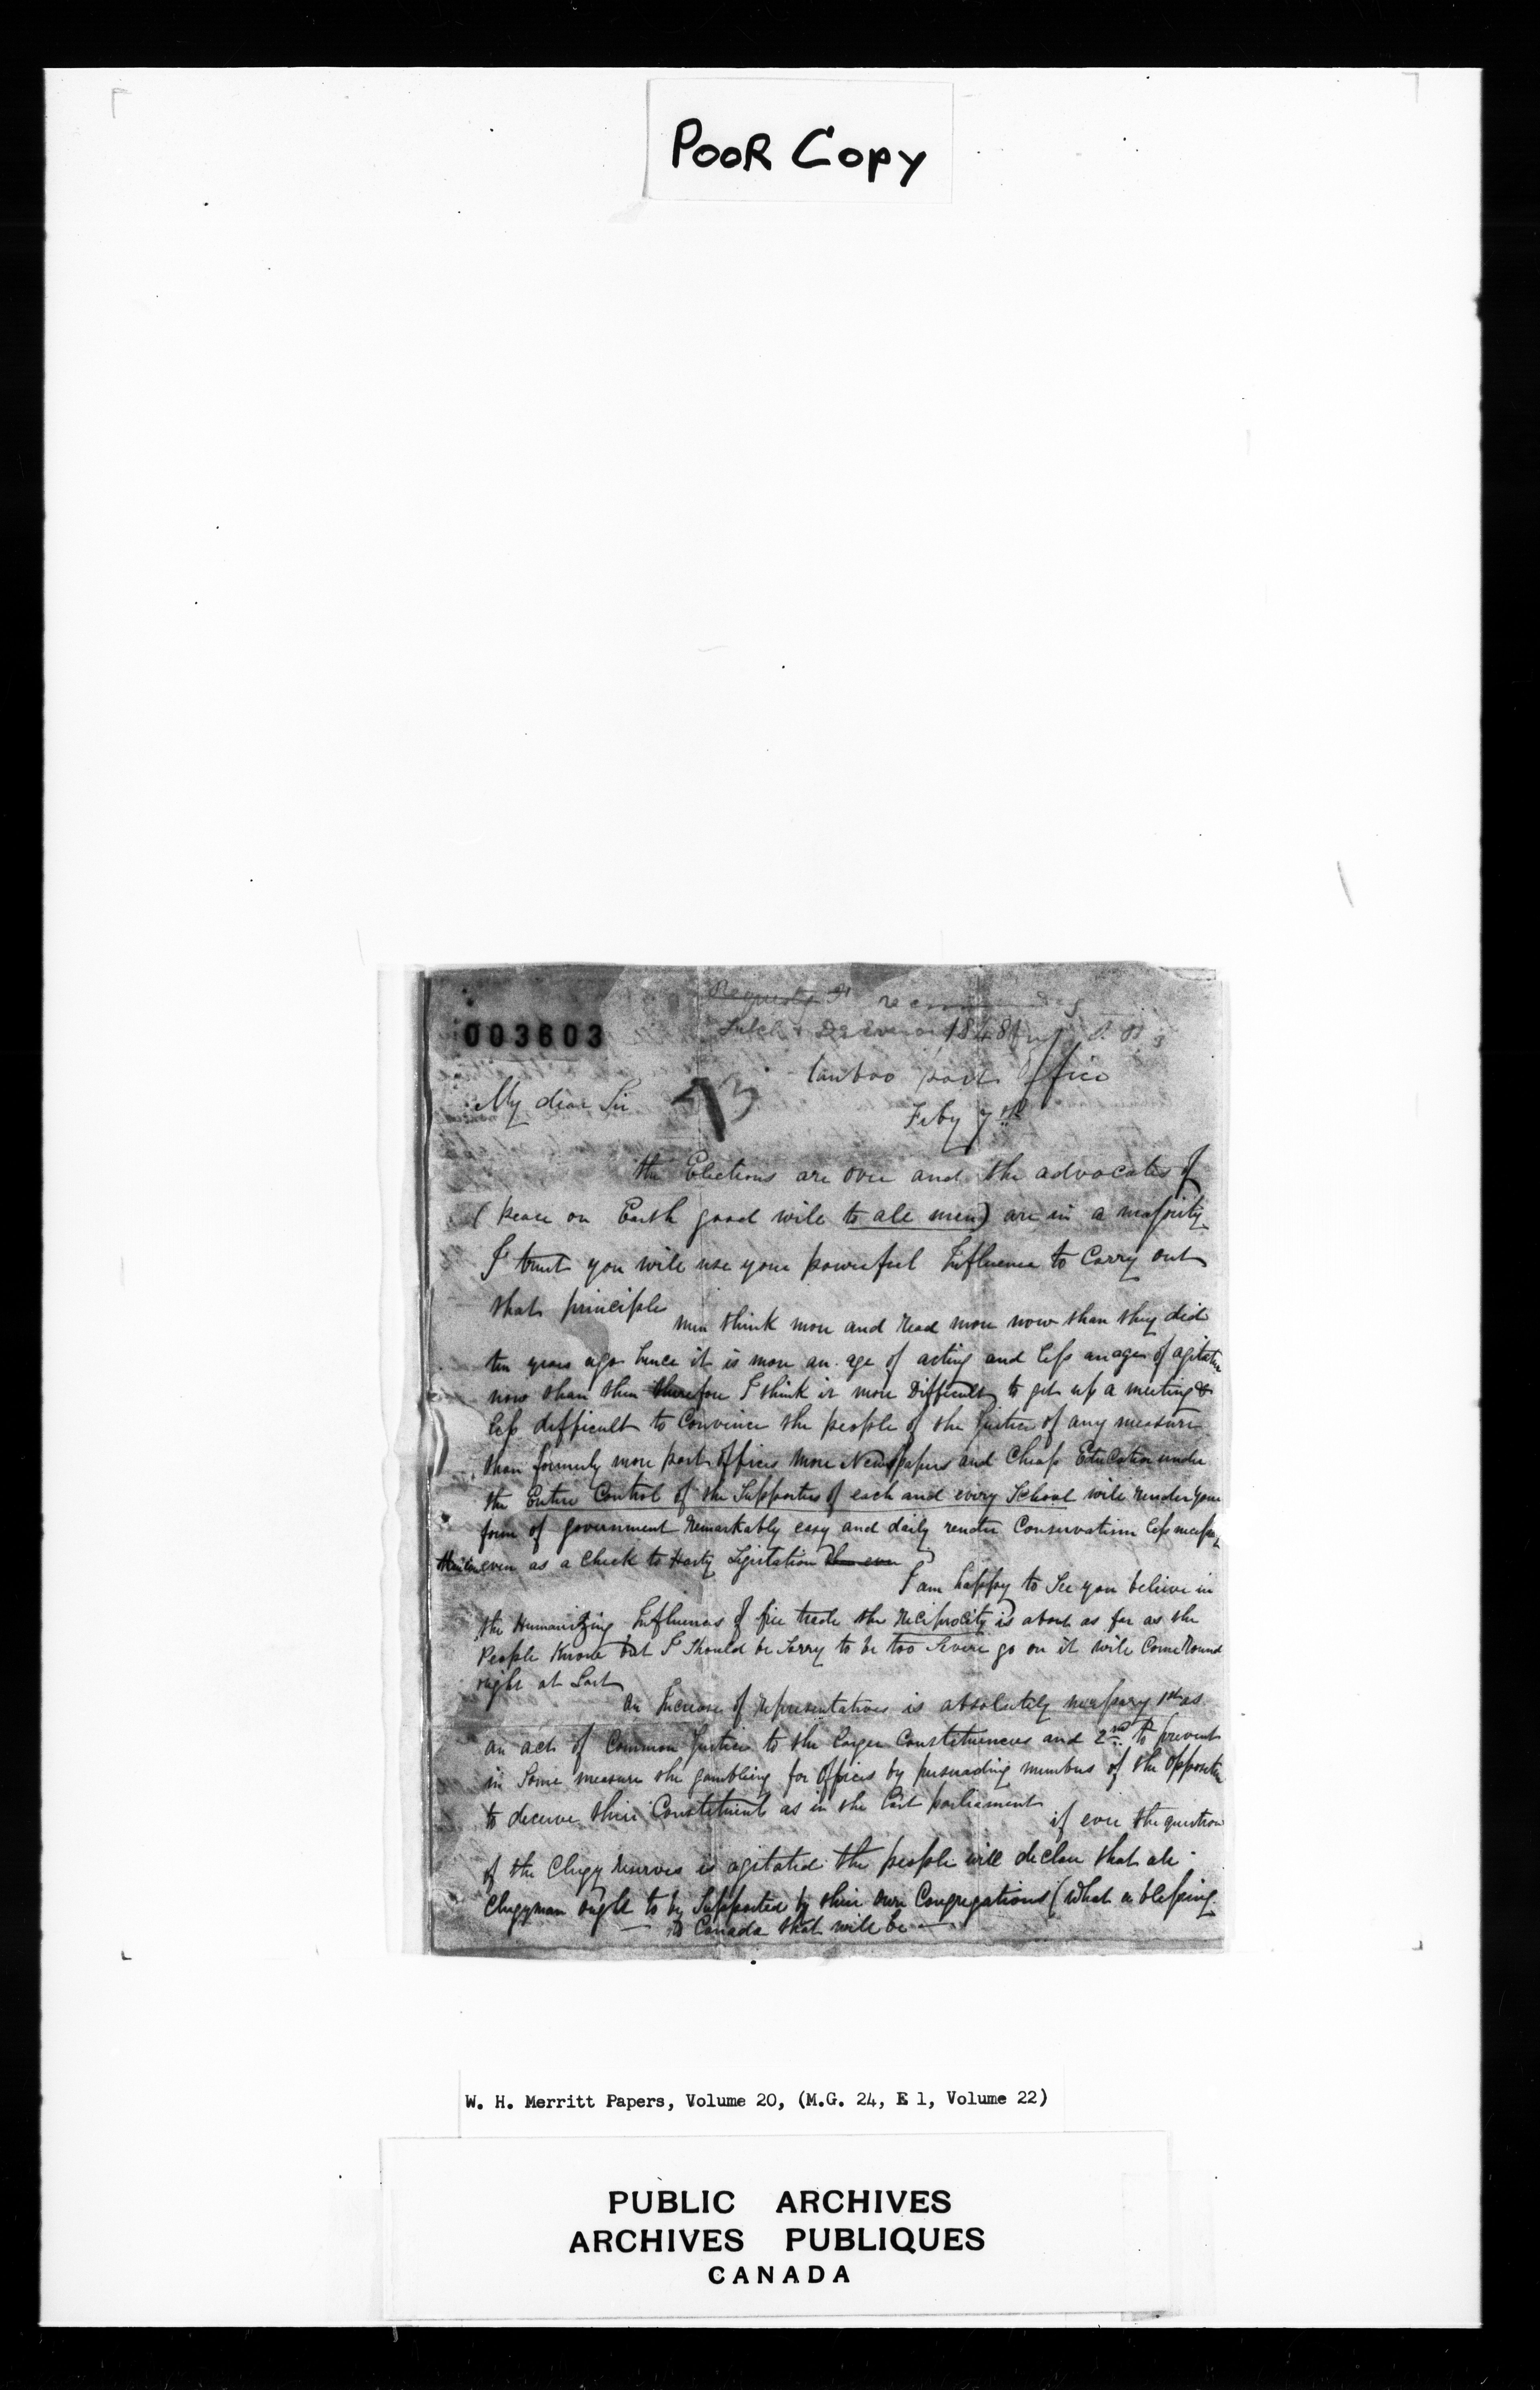 POOR COPY
003603
1848
My dear Sir
post Office
Feby 7th
the Elections are over and the advocates of
(peace on Earth good wile to ale men) are in a majority
I trust you wile use your powerfull Influence to Carry out
that principle
men think more and read more now than they did
ten years ago hence it is more an age of acting and less an age of agitation
now than then therefore I think it more Difficult to get up a meeting &
less difficult to Convince the people of the Justice of any measure
than formerly more post offices more Newspapers and Cheap Education under
the Entire Control of the Supporters of each and every School wile render your
form of government remarkably easy and daily render Conservatism less necessary
even as a Check to Hasty Legislation
I am happy to See you believe in
the Humanizing Influences of free trade the reciprocity is about as far as the
People Know but I Should be Sorry to be too Severe go on it wile Come round
right at Last
an Increase of representatives is absolutely necessary 1st as
an act of Common Justice to the larger Constituencies and 2nd to prevent
in Some measure the gambling for Offices by persuading members of the Opposition
to deceive their Constituents as in the last parliament
if ever the question
of the Clergy reserves is agitated the people will declare that ale
Clergyman ought to be Supported by their own Congregations (What a blessing
to Canada that wile be
W. H. Merritt Papers, Volume 20, (M.G. 24, E 1, Volume 22)
PUBLIC ARCHIVES
ARCHIVES PUBLIQUES
CANADA